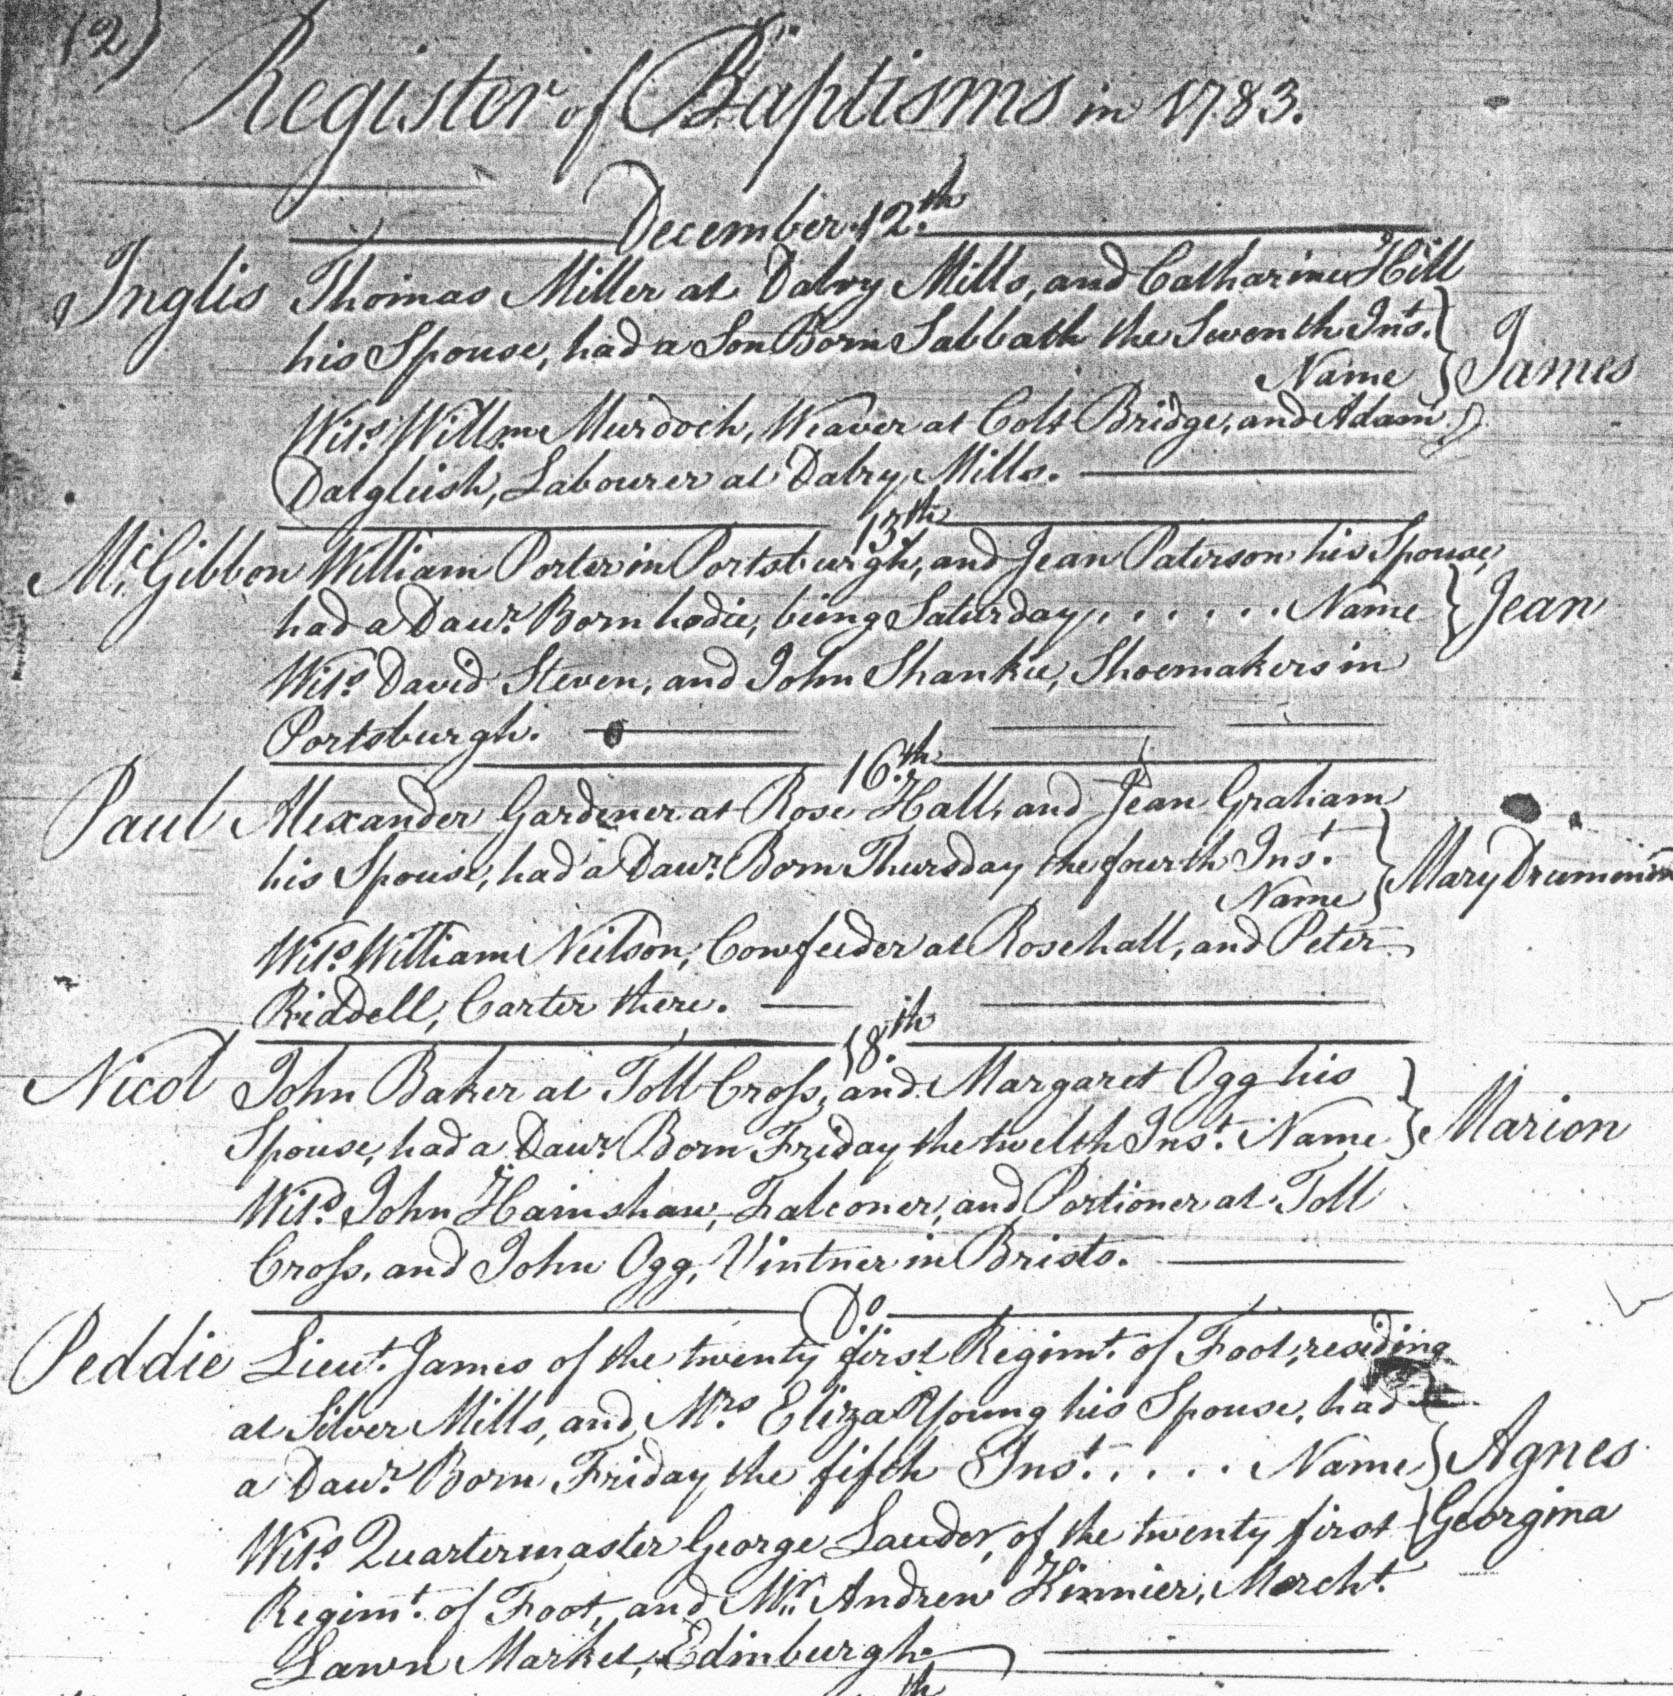 (2)
Register of Baptisms in 1783.
December 12.th
Inglis Thomas Miller at Dalry Mills, and Catharine Hill
his Spouse, had a Son Born Sabbath the Seventh Inst.
Name } James
Wits. Willm. Murdoch, Weaver at Colt Bridge, and Adam
Dalgleish, Labourer at Dalry Mills.
13th
McGibbon William Porter in Portsburgh, and Jean Paterson his Spouse,
had a Daur. Born hodie, being Saturday, . . . . . . Name } Jean
Wits. David Steven, and John Shankie, Shoemakers in
Portsburgh.
16.th
Paul Alexander Gardener at Rose Hall, and Jean Graham
his Spouse, had a Daur. Born Thursday the fourth Inst.
Name } Mary Drummond
Wits. William Neilson, Cowfeeder at Rosehall, and Peter
Riddell, Carter there.
18.th
Nicol John Baker at Toll Cross, and Margaret Ogg his
Spouse, had a Daur. Born Friday the twelth Inst. Name } Marion
Wits. John Hainshaw, Falconer, and Portioner at Toll
Cross, and John Ogg, Vintner in Bristo.
Do.
Peddie Lieut. James of the twenty first Regimt. of Foot, residing
at Silver Mills, and Mrs Eliza Young his Spouse, had
a Daur. Born Friday the fifth Inst. . . . . Name } Agnes
Wits. Quartermaster George Lauder, of the twenty first { Georgina
Regimt. of Foot, and Mr. Andrew Kinnier, Mercht.
Lawn Market, Edinburgh.
th